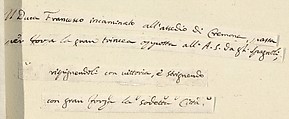 Il Duca Francesco incaminato all'assedio di Cremona, passa
per forza la gran trincea opposta all'A. S. da gli Spagnoli,
rispignendoli con vittoria e strignendo
con gran forza la sodetta Città.